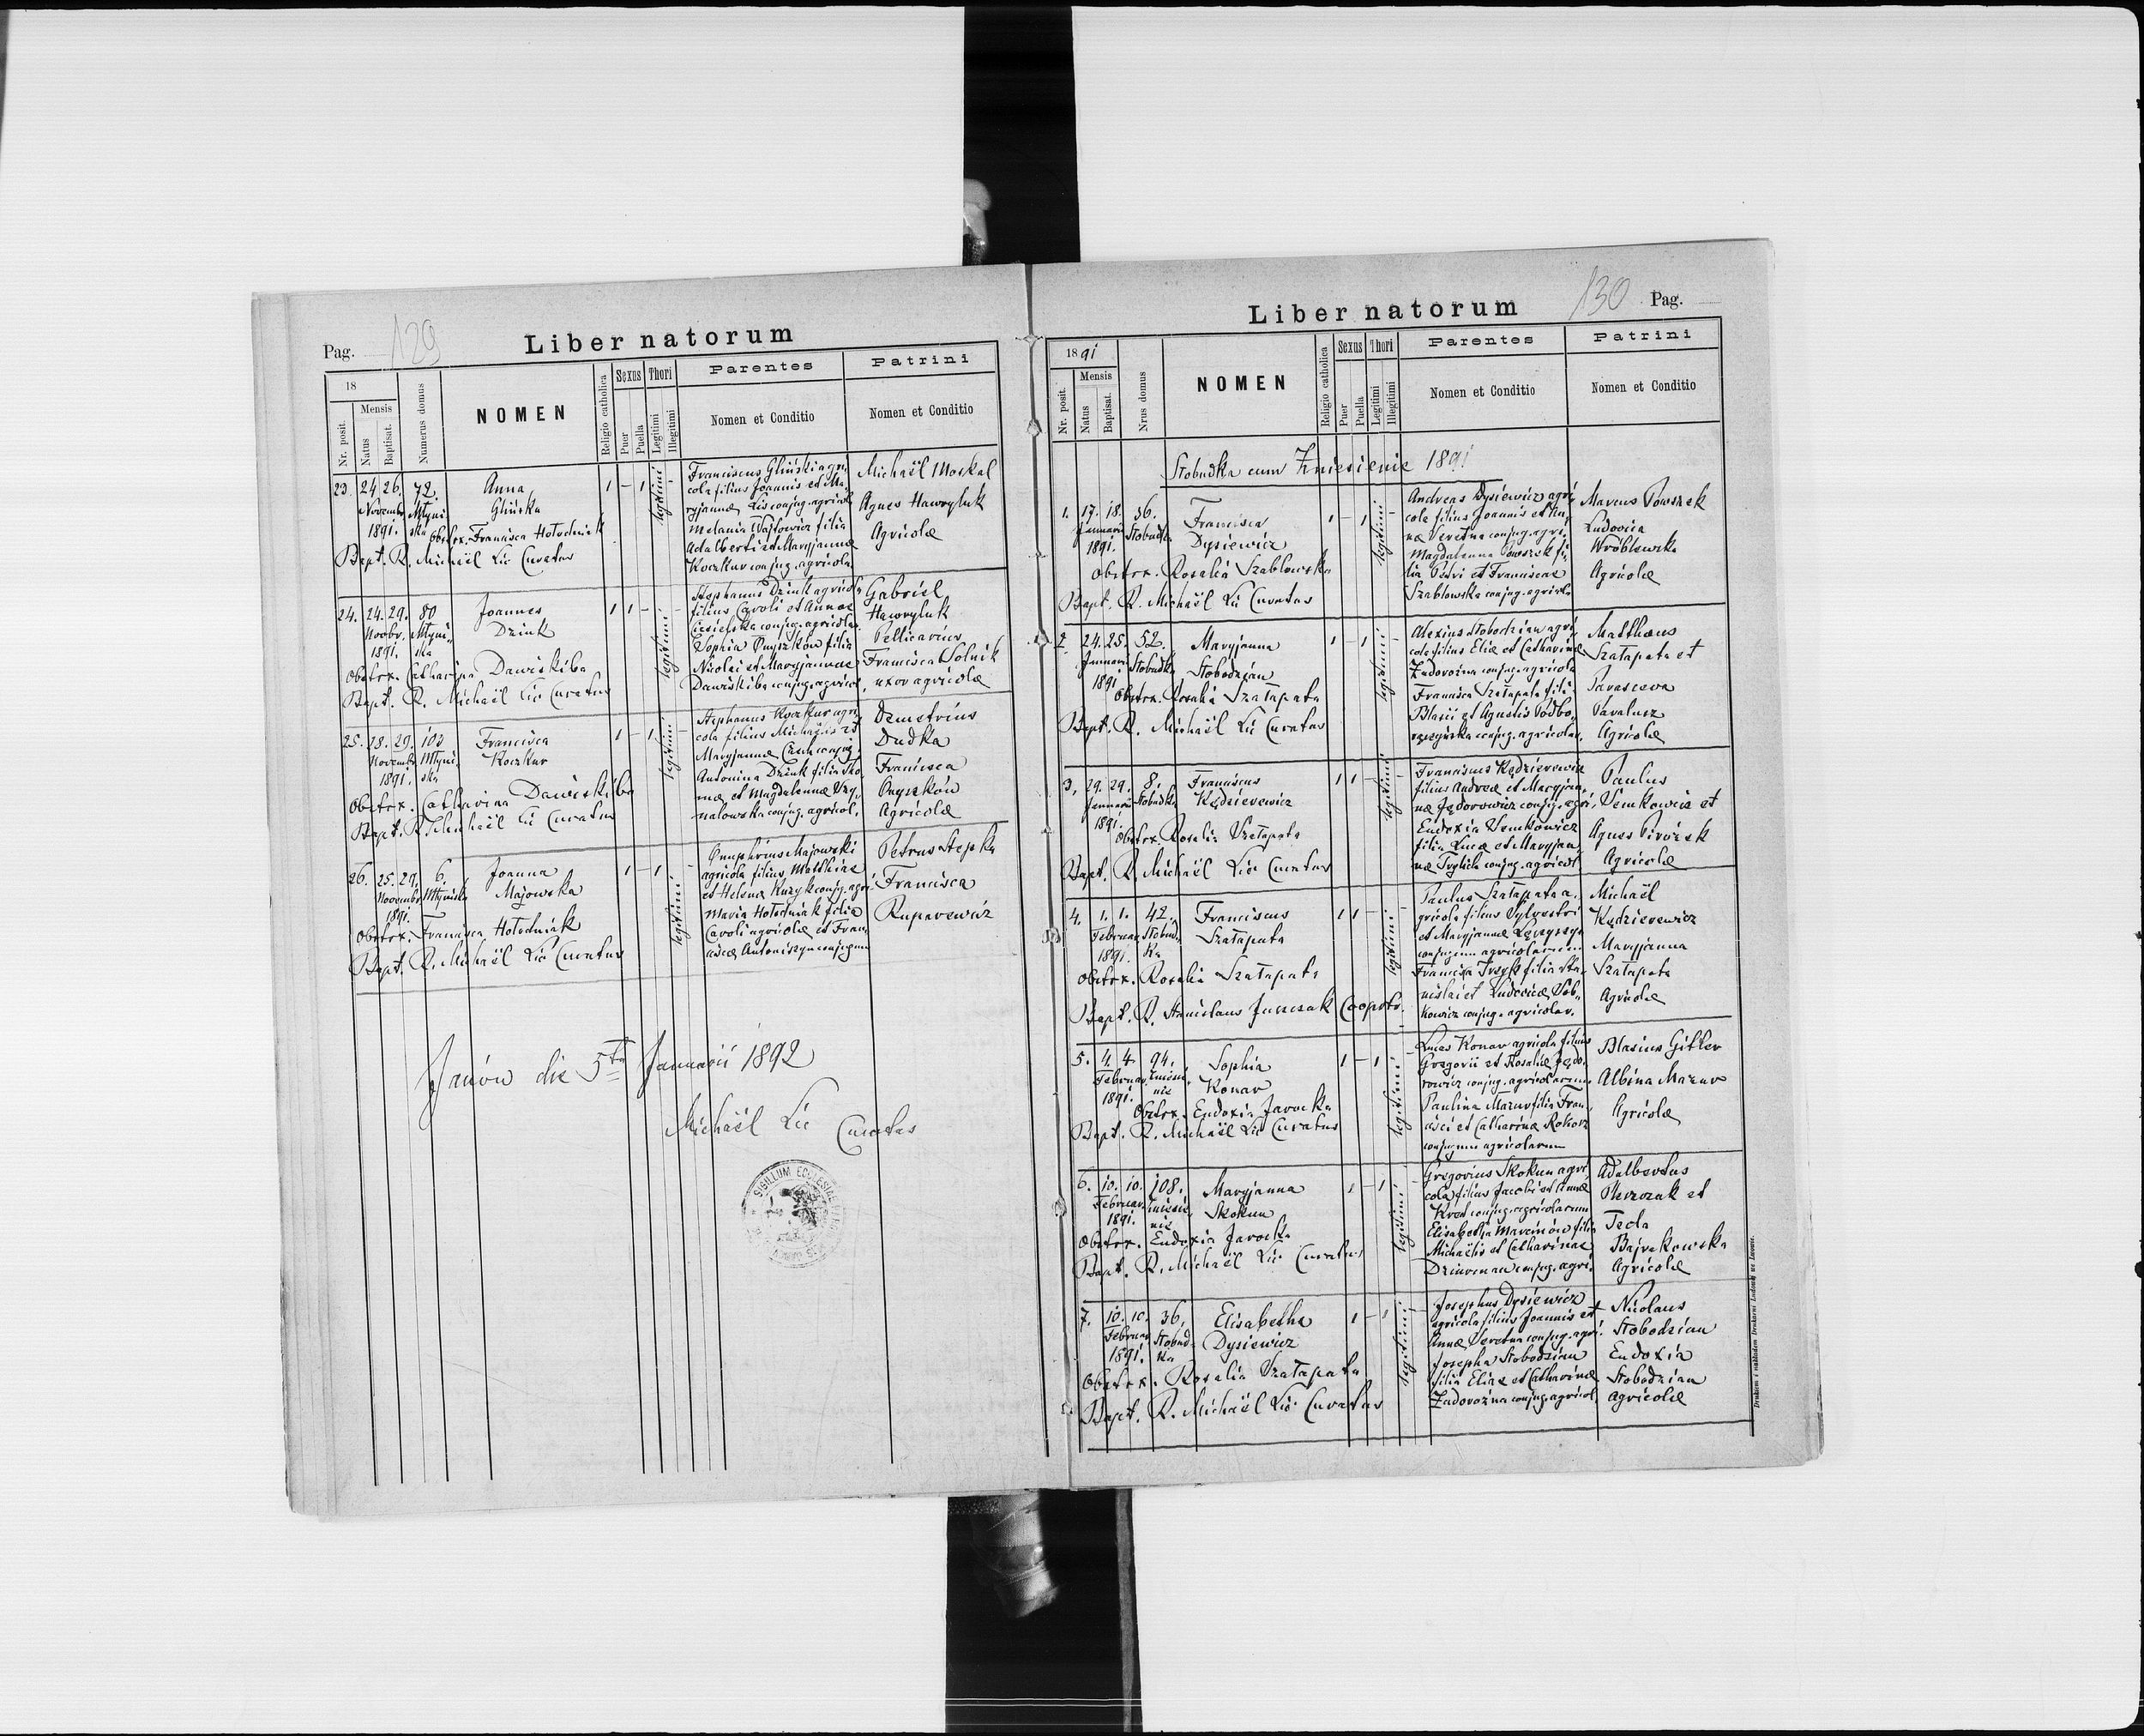 Pag. 129
Liber natorum
18
Nr. posit.
Mensis
Natus
Baptisat.
Numerus domus
NOMEN
Religio catholica
Sexus
Puer
Puella
Thori
Legitimi
Illegitimi
Parentes
Nomen et Conditio
Patrini
Nomen et Conditio
23. 24. 26. 72.
Novembr. Młyni
1891. ska
Anna
Glińska
Obstex. Francisca Hołodniak
Bapt. R. Michaël Lic Curatus
1 - 1
legitimi
Franciscus Gliński agri
cola filius Joannis et Ma
ryjannæ Lis conjug. agricol
Melania Wajtowicz filia
Adalberti et Maryjannæ
Koczkur conjug. agricola
Michaël Moskal
Agnes Hawryluk
Agricolæ
24. 24. 29. 80
Novbr. Młyni
1891. ska
Joannes
Dziuk
Obstex. Catharina Dawiskiba
Bapt. R. Michaël Lic Curatus
1 1 -
legitimi
Stephanus Dziuk agricola
filius Caroli et Annæ
Ciesielska conjug. agricolar.
Sophia Onyszków filia
Nicolai et Maryjannæ
Dawiskiba conjug. agricol.
Gabriel
Hawryluk
Pellicarius
Francisca Solnik
uxor agricolæ
25. 28. 29. 103
Novembr. Młyni
1891. ska
Francisca
Koczkur
Obstex. Catharina Dawiskiba
Bapt. R. Michaël Lic Curatus
1 - 1
legitimi
Stephanus Koczkur agri
cola filius Michaëlis et
Maryjannæ Czuh conjug.
Antonina Dziuk filia Tho
mæ et Magdalenæ
conjug. agricol.
Demetrius
Dudka
Francisca
Onyszków
Agricolæ
26. 25. 29. 6.
Novembr. Młyńska
1891.
Joanna
Majowska
Obstex. Francisca Hołodniak
Bapt. R. Michaël Lic Curatus
1 - 1
legitimi
Onuphrius Majowski
agricola filius Matthiae
et Helenæ Kuzyk conjug. agri
Maria Hołodniak filia
Caroli agricolæ et Fran
ciscæ Antoniszyn conjugum
Petrus Stepka
Francisca
Ruparewicz
Janów die 5ta Januarii 1892
Michaël Lic Curatus
SIGILLUM ECCLESIAE
Liber natorum
130 Pag.
1891
Nr. posit.
Mensis
Natus
Baptisat.
Nrus domus
NOMEN
Religio catholica
Sexus
Puer
Puella
Thori
Legitimi
Illegitimi
Parentes
Nomen et Conditio
Patrini
Nomen et Conditio
Słobudka cum Zniesienie 1891
1. 17. 18. 36.
Januarii Słobudka
1891.
Francisca
Dysiewicz
Obstex. Rosalia Szablowska
Bapt. R. Michaël Lic Curatus
1 - 1
legitimi
Andreas Dysiewicz agri
cola filius Joannis et An
næ Seretna conjug. agri.
Magdalenna Powszek fi
lia Petri et Franciscae
Szablowska conjug. agricola
Marcus Powszek
Ludovica
Wróblewska
Agricolæ
2. 24. 25. 52.
Januari Słobudka
1891
Maryjanna
Słobodzian
Obstex. Rosalia Szałapata
Bapt. R. Michaël Lic Curatus
1 - 1
legitimi
Alexius Słobodzian agri
cola filius Eliæ et Catharinæ
Zadorożna conjug. agricola
Francisca Szałapata filia
Blasii et Agnetis Podho
conjug. agricolar.
Matthaeus
Szałapata et
Parasceva
Agricolæ
3. 29. 29. 8.
Januarii Słobudka
1891.
Franciscus
Kędzierewicz
Obstex. Rosalia Szałapata
Bapt. R. Michaël Lic Curatus
1 1 -
legitimi
Franciscus Kędzierewicz
filius Andreæ et Maryjan
næ Fędorowicz conjug. agri
Eudoxia Semkowicz
filia Lucæ et Maryjan
næ conjug. agricol
Paulus
Semkowicz et
Agnes Pirożek
Agricolæ
4. 1. 1. 42.
Februar. Słobud
1891. ka
Franciscus
Szałapata
Obstex. Rosalia Szałapata
Bapt. R. Stanislaus Juszczak Cooperr.
1 1 -
legitimi
Paulus Szałapata a
gricola filius Sylvestri
et Maryjannæ
conjugum agricolarum
Francisca filia Sta
nislai et Ludovicæ Sob
kowicz conjug. agricolar.
Michaël
Kędzierewicz
Maryjanna
Szałapata
Agricolæ
5. 4. 4. 94.
Februar. Zniesie
1891. nie
Sophia
Konar
Obstex. Eudoxia Jarocka
Bapt. R. Michaël Lic Curatus
1 - 1
legitimi
Lucas Konar agricola filius
Gregorii et Rosaliæ Fędo
rowicz conjug. agricolarum
Paulina Mazur filia Fran
cisci et Catharinæ Kokosz
conjugum agricolarum
Blasius Gitler
Albina Mazur
Agricolæ
6. 10. 10. 108.
Februar. Zniesie
1891. nie
Maryjanna
Skokun
Obstex. Eudoxia Jarocka
Bapt. R. Michaël Lic Curatus
1 - 1
legitimi
Gregorius Skokun agri
cola filius Jacobi et Annæ
Kret conjug. agricolarum
Elisabetha Marcinów filia
Michaëlis et Catharinae
conjug. agri.
Adalbertus
et
Tecla
Bajrakowska
Agricolæ
7. 10. 10. 36.
Februar. Słobud
1891. ka
Elisabetha
Dysiewicz
Obstex. Rosalia Szałapata
Bapt. R. Michaël Lic Curatus
1 - 1
legitimi
Josephus Dysiewicz
agricola filius Joannis et
Annæ Seretna conjug. agri.
Josepha Słobodzian
filia Eliæ et Catharinæ
Zadorożna conjug. agricol.
Nicolaus
Słobodzian
Eudoxia
Słobodzian
Agricolæ
Drukiem i nakładem Drukarni Ludowej we Lwowie.